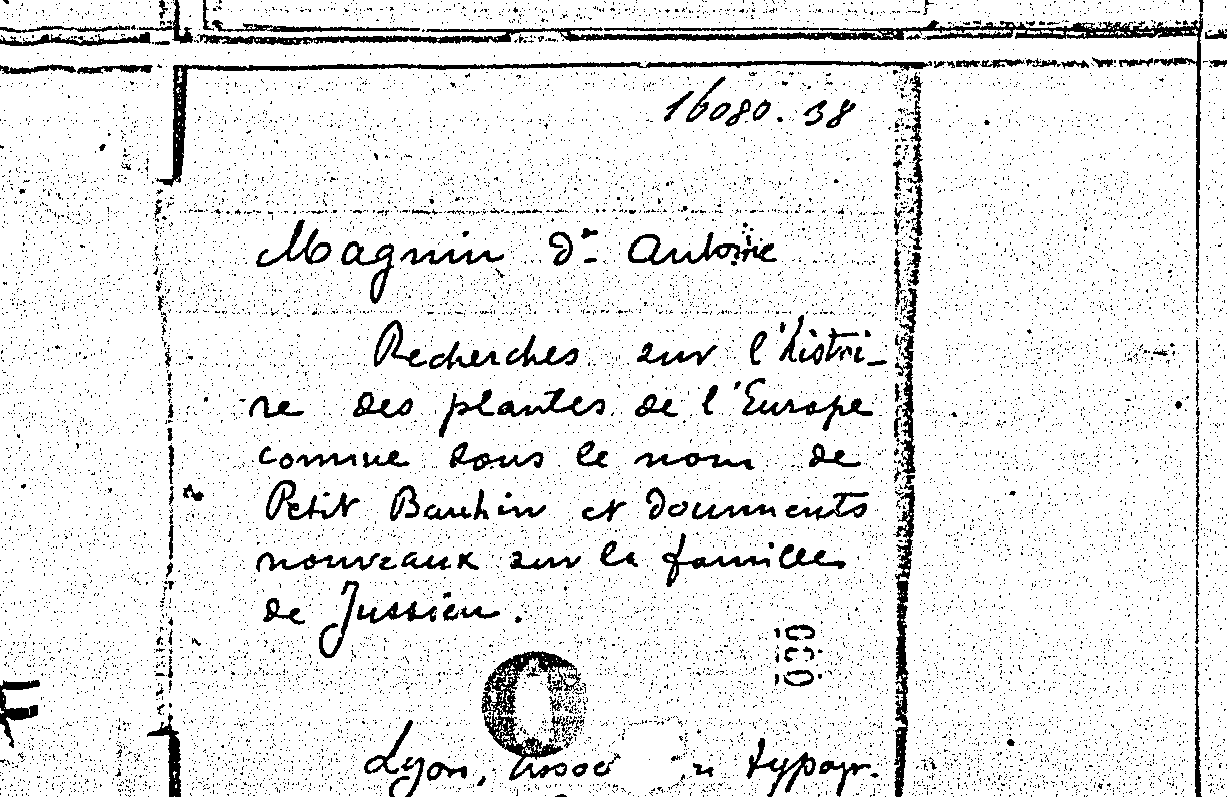 16080.38
Magnin Dr Antoine
Recherches sur l'histri-
re des plantes de l'Europe
connue sous le nom de
Petit Bauhin et documents
nouveaux sur la famille
de Jussieu.
000
Lyon, typogr.